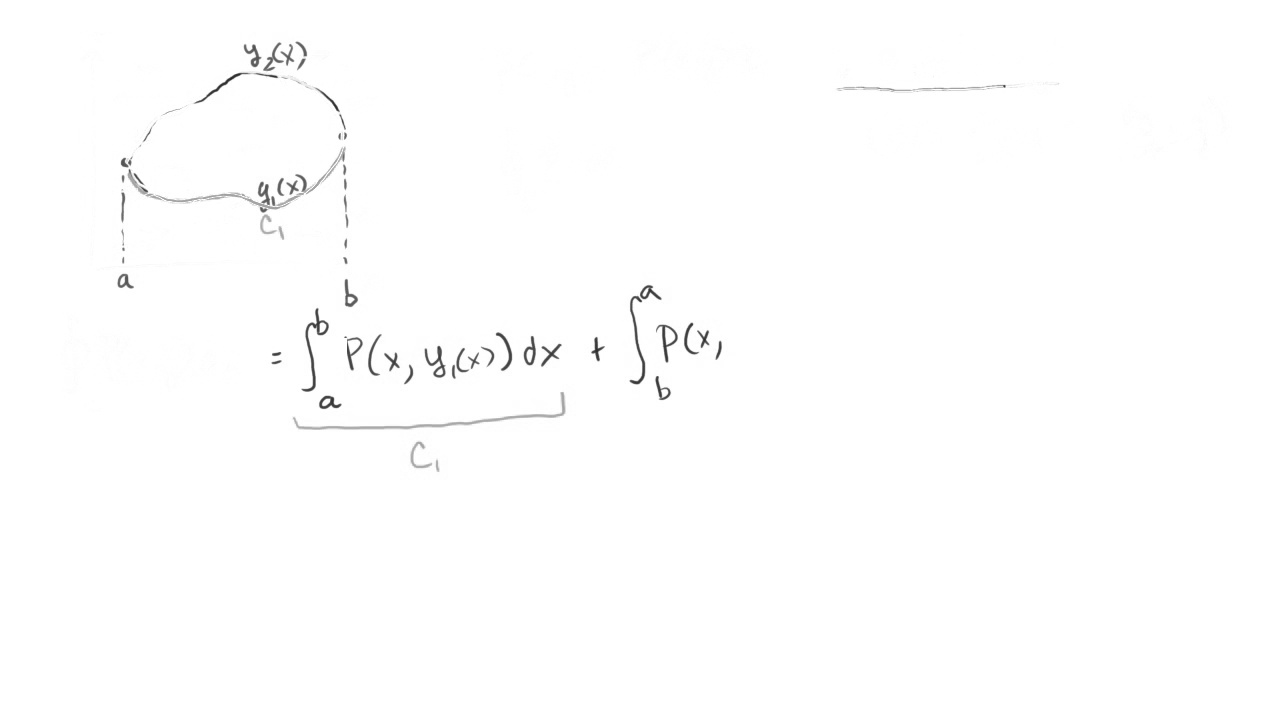 y₂(x)
y₁(x)
C₁
a
b
= ∫_a^b P(x, y₁(x)) dx + ∫_b^a P(x,
C₁